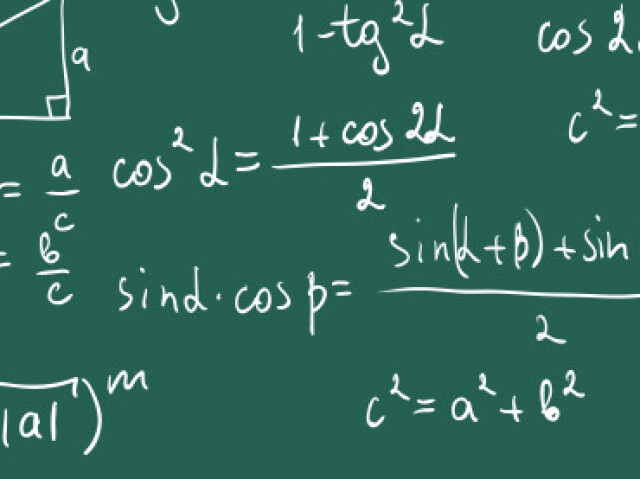 1-tg²α
cos 2
a
c² =
cos²α = (1 + cos 2α)/2
= a/c
= b/c
sinα · cos β = (sin(α+β) + sin)/2
|a|)ᵐ
c² = a² + b²